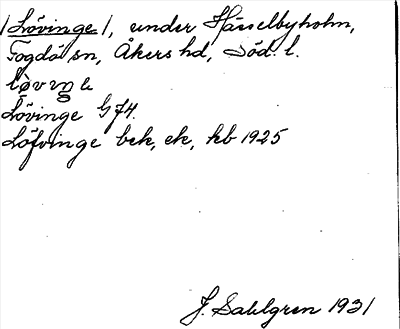 /Lövinge/, under Hässelbyholm,
Fogdö sn, Åkers hd, Söd. l.
Lövinge G 74.
Löfvinge bek, ek, kb 1925
J. Sahlgren 1931